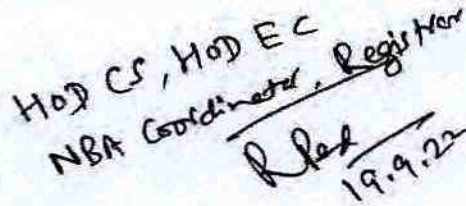 HOD CS, HOD EC
NBA Coordinator, Registrar
19.9.22